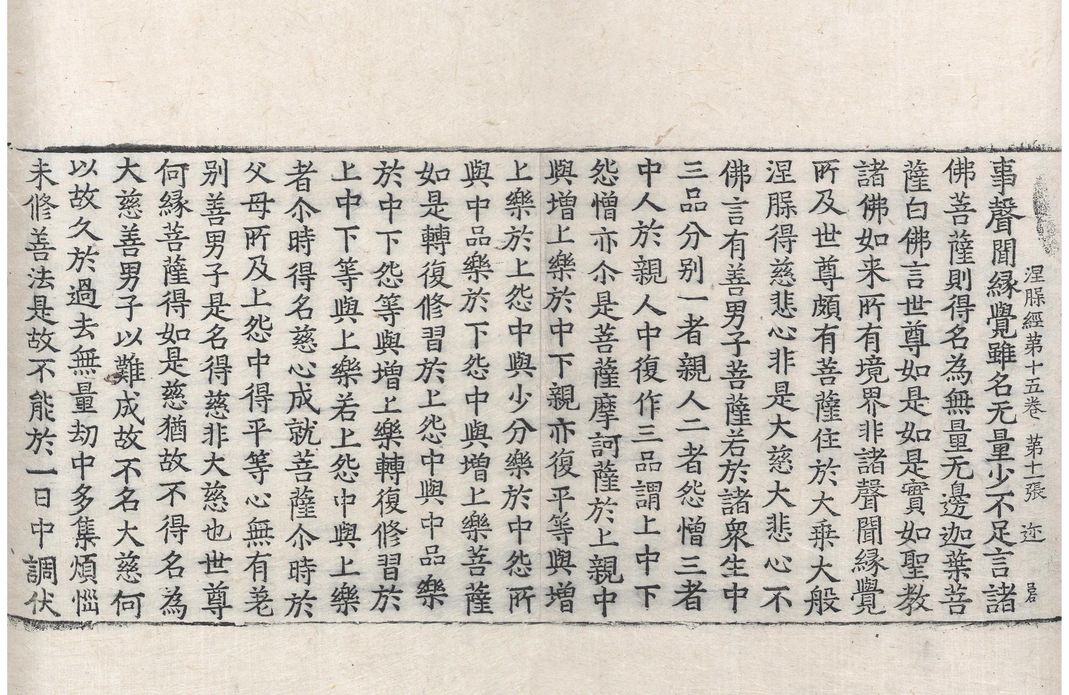 涅槃經第十五卷 第十一張 迩
事聲聞縁覺雖名无量少不足言諸
佛菩薩則得名為無量无邊迦葉菩
薩白佛言世尊如是如是實如聖教
諸佛如来所有境界非諸聲聞縁覺
所及世尊頗有菩薩住於大乗大般
涅槃得慈悲心非是大慈大悲心不
佛言有善男子菩薩若於諸衆生中
三品分别一者親人二者怨憎三者
中人於親人中復作三品謂上中下
怨憎亦尒是菩薩摩訶薩於上親中
與增上樂於中下親亦復平等與增
上樂於上怨中與少分樂於中怨所
與中品樂於下怨中與增上樂菩薩
如是轉復修習於上怨中與中品樂
於中下怨等與增上樂轉復修習於
上中下等與上樂若上怨中與上樂
者尒時得名慈心成就菩薩尒時於
父母所及上怨中得平等心無有差
别善男子是名得慈非大慈也世尊
何縁菩薩得如是慈猶故不得名為
大慈善男子以難成故不名大慈何
以故久於過去無量劫中多集煩惱
未修善法是故不能於一日中調伏